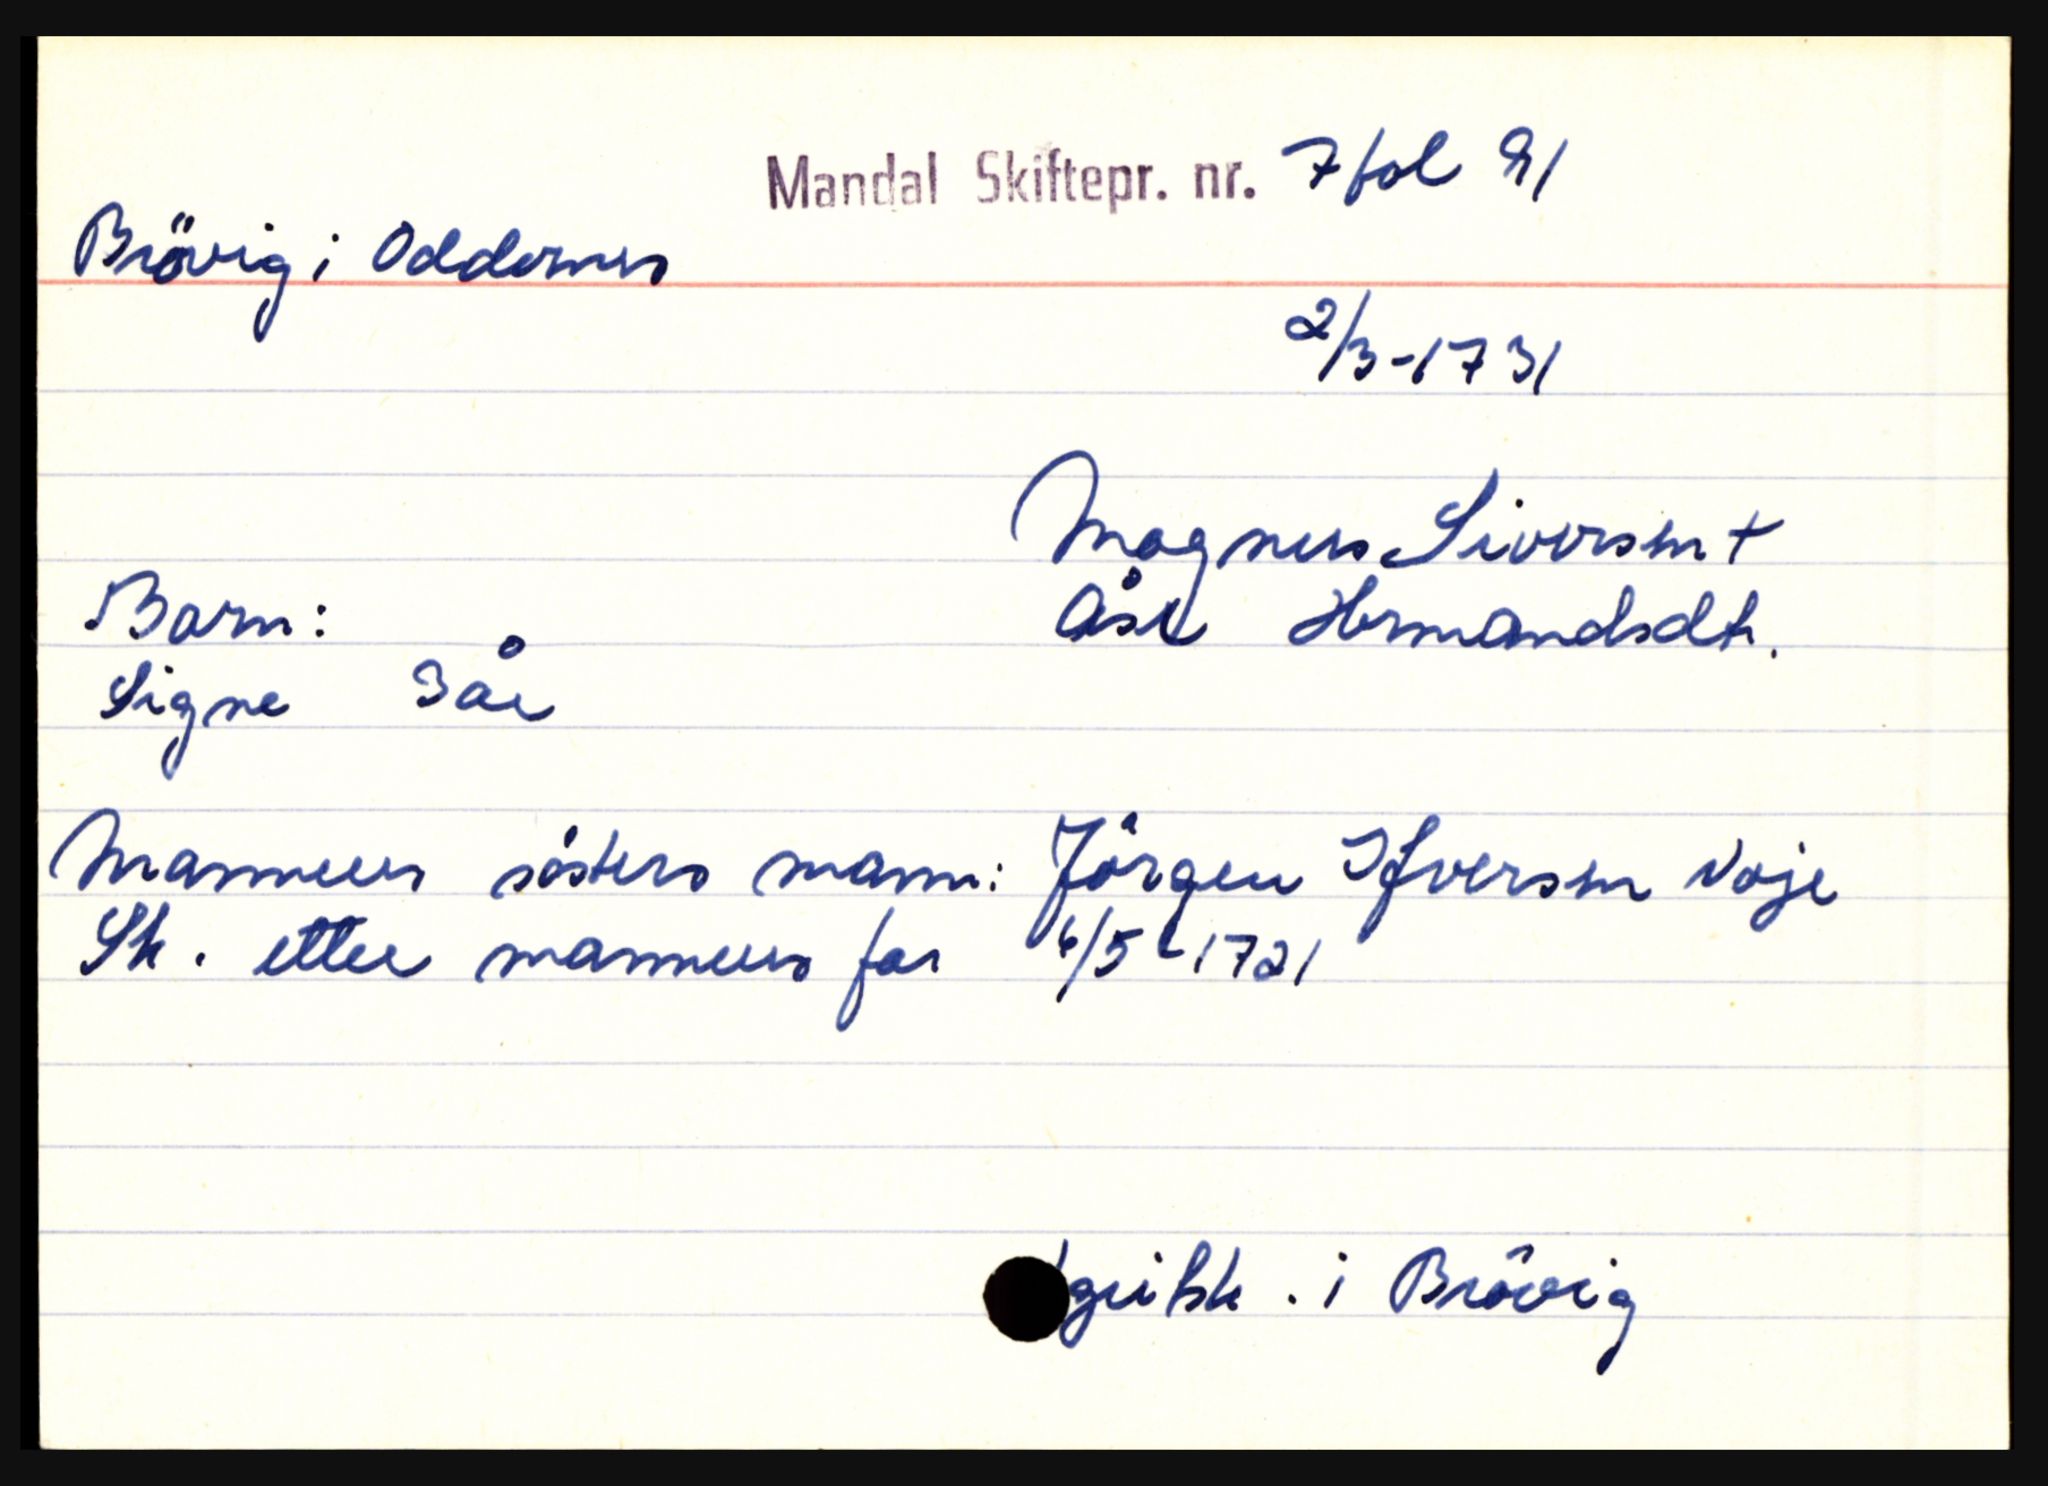 Mandal Skiftepr. nr. 7 fol 91
Brövig i Oddernes
2/3-1731
Magnus Siversen +
Barn: Åse Hermandsdtr.
Signe 3 år
Mannens søsters mann: Jörgen Ifversen Voje
Sk. etter mannens far 6/5 1721
i Brövig